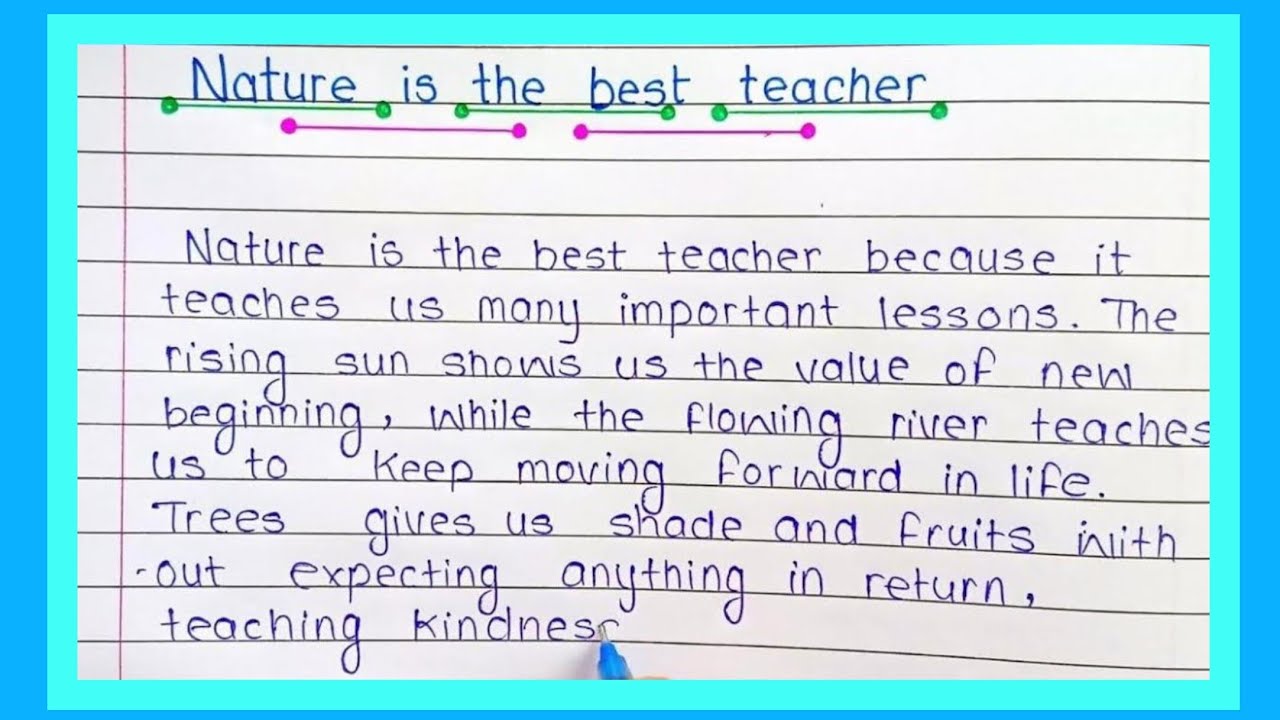 Nature is the best teacher
Nature is the best teacher because it
teaches us many important lessons. The
rising sun shows us the value of new
beginning, while the flowing river teaches
us to keep moving forward in life.
Trees gives us shade and fruits with
-out expecting anything in return,
teaching kindness